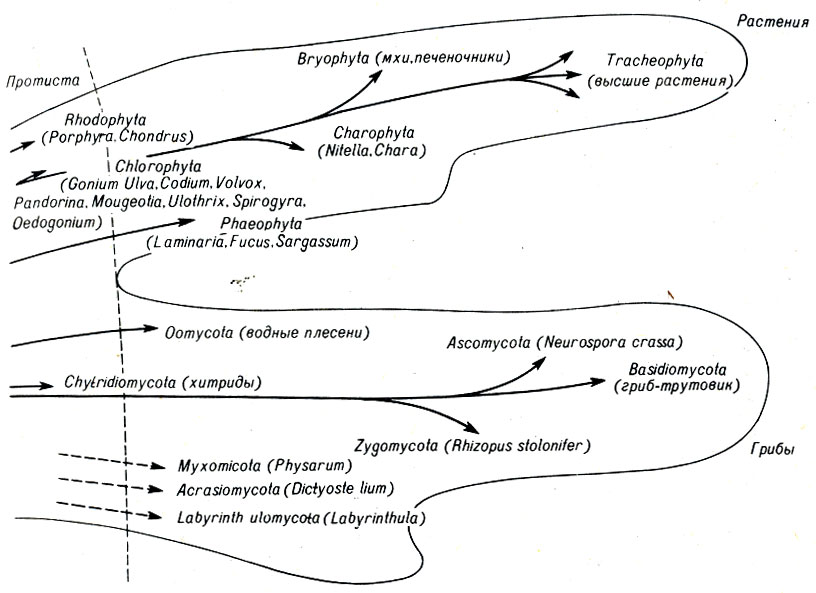 Растения
Bryophyta (мхи,печеночники)
Tracheophyta
(высшие растения)
Протиста
Rhodophyta
(Porphyra,Chondrus)
Charophyta
(Nitella,Chara)
Chlorophyta
(Gonium Ulva,Codium,Volvox,
Pandorina,Mougeotia,Ulothrix,Spirogyra,
Oedogonium)
Phaeophyta
(Laminaria,Fucus,Sargassum)
Oomycota (водные плесени)
Ascomycota (Neurospora crassa)
Chytridiomycota (хитриды)
Basidiomycota
(гриб-трутовик)
Zygomycota (Rhizopus stolonifer)
Грибы
Myxomicota (Physarum)
Acrasiomycota (Dictyoste lium)
Labyrinth ulomycota (Labyrinthula)